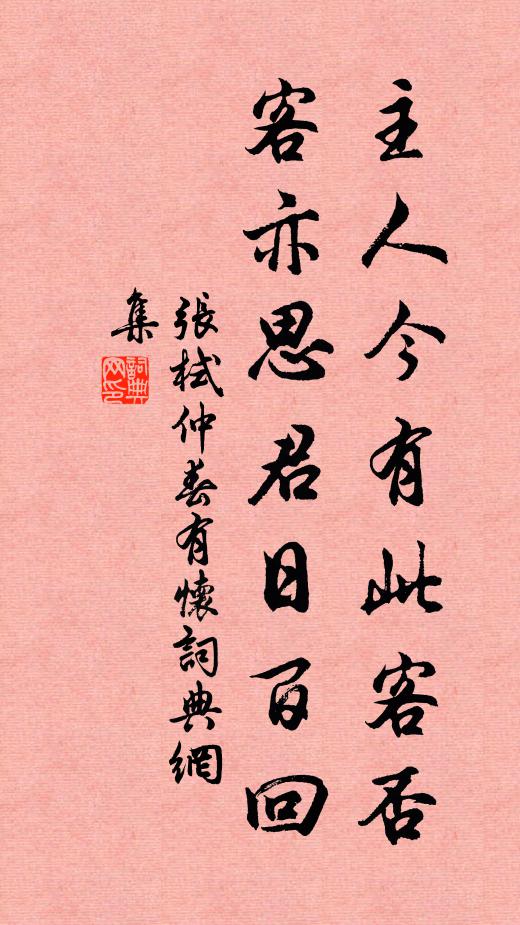 主人今有此客否
客亦思君日百回
張栻仲春有懷詞典網
集
詞典
网印